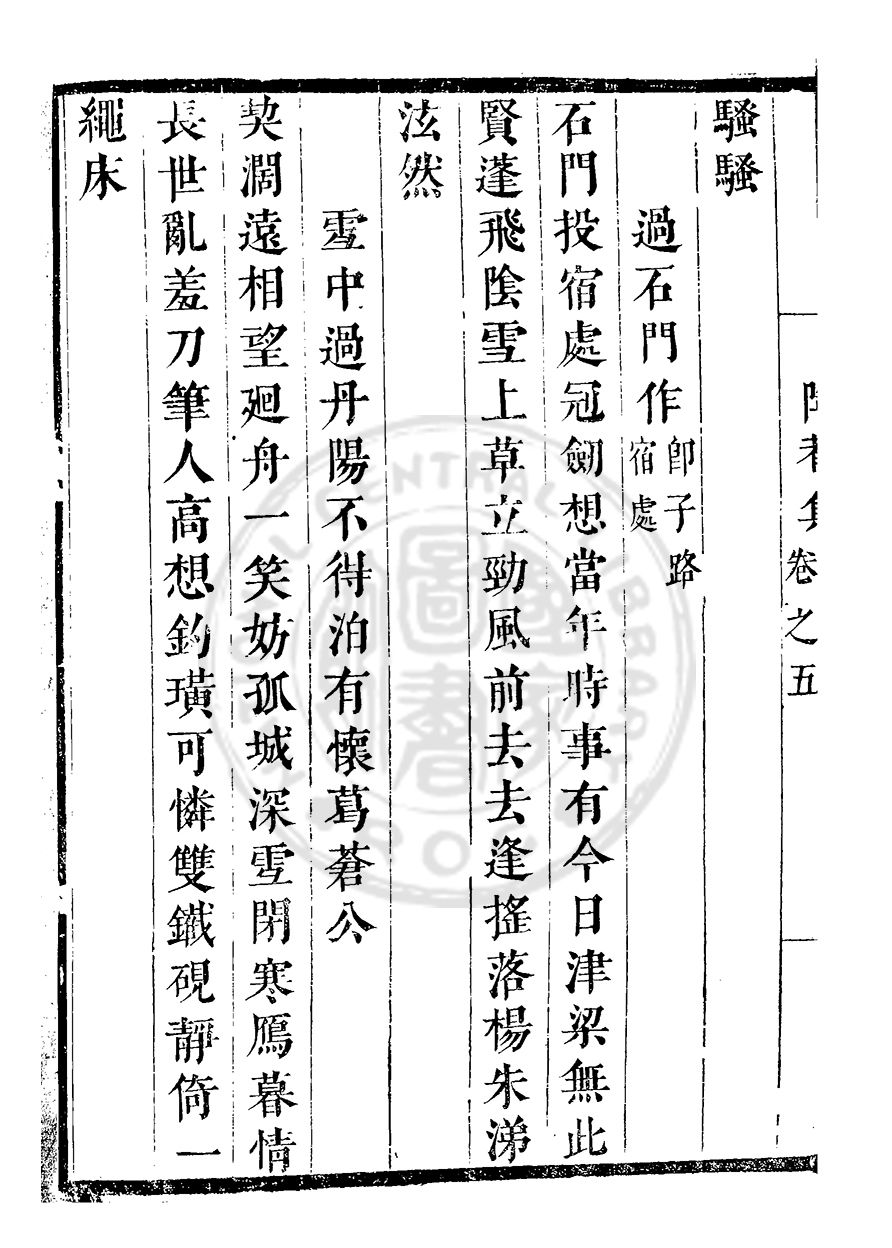 卷之五
騷騷
過石門作卽子路宿處
石門投宿處冠劒想當年時事有今日津梁無此
賢蓬飛陰雪上草立勁風前去去逢搖落楊朱涕
泫然
雪中過丹陽不得泊有懷葛蒼公
契濶遠相望廻舟一笑妨孤城深雪閉寒鴈暮情
長世亂羞刀筆人高想釣璜可憐雙鐵硯靜倚一
繩床